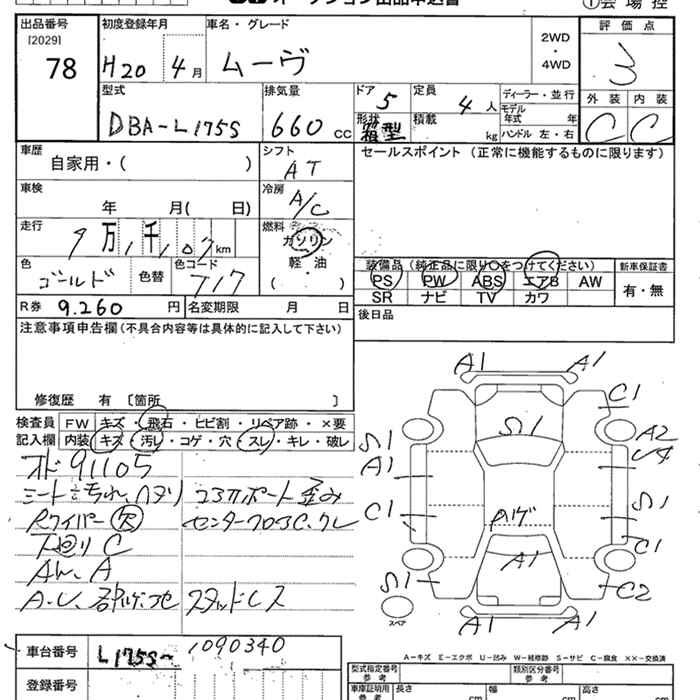 出品番号
[2029]
78
初度登録年月
H20年4月
車名・グレード
ムーヴ
2WD
・
4WD
評価点
3
外装 内装
C C
型式
DBA-L175S
排気量
660 CC
ドア 5
形状 箱型
定員 4人
積載 kg
ディーラー・並行
モデル年式 年
ハンドル 左・右
車歴
自家用・( )
シフト
AT
車検
年 月( 日)
冷房
A/C
走行
9万1千107km
燃料
ガソリン
軽・油
( )
色
ゴールド
色替
色コード
T17
R券 9.260円
名変期限 月 日
セールスポイント(正常に機能するものに限ります)
装備品(純正品に限り○をつけてください)
PS PW ABS エアB AW
SR ナビ TV カワ
新車保証書
有・無
後日品
注意事項申告欄(不具合内容等は具体的に記入して下さい)
修復歴 有 [箇所 ]
検査員 FW キズ・飛石・ヒビ割・リペア跡・×要
記入欄 内装 キズ・汚レ・コゲ・穴・スレ・キレ・破レ
91105
Rワイパー欠
下廻りC
スタッドレス
A1 A1
C1
S1 S1 A2
A1
C1 S1
C1
A1
S1 C2
A1 A1
スペア
車台番号 L175S-1090340
登録番号
A-キズ E-エクボ U-凹み W-補修跡 S-サビ C-腐食 ××-交換済
型式指定番号
参考
類別区分番号
参考
車庫証明用
参考
長さ cm 幅 cm 高さ cm